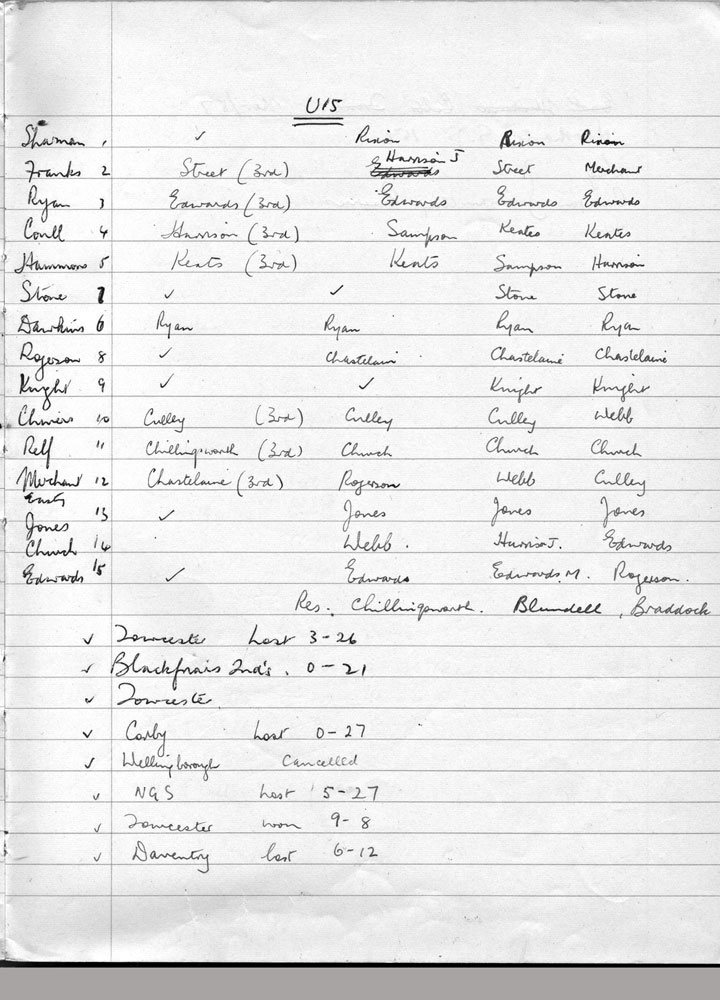 U15
Sharman 1 ✓ Rixon Rixon Rixon
Franks 2 Street (3rd) Harrison J Street Merchant
Ryan 3 Edwards (3rd) Edwards Edwards Edwards
4 Harrison (3rd) Sampson Keates Keates
Hammons 5 Keats (3rd) Keats Sampson Harrison
Stone 7 ✓ ✓ Stone Stone
Dawkins 6 Ryan Ryan Ryan Ryan
Rogerson 8 ✓ Chastelain Chastelaine Chastelaine
Knight 9 ✓ ✓ Knight Knight
10 Culley (3rd) Culley Culley Webb
Relf 11 Chillingsworth (3rd) Church Church Church
Merchant 12 Chastelaine (3rd) Rogerson Webb Culley
Jones 13 ✓ Jones Jones Jones
Church 14 Webb. Harrison J. Edwards
Edwards 15 ✓ Edwards Edwards. M. Rogerson.
Res. Chillingsworth. Blundell, Braddock
✓ Towcester Lost 3-26
✓ Blackfriais 2nd's. 0-21
✓ Towcester.
✓ Corby Lost 0-27
✓ Wellingborough Cancelled
✓ NGS Lost 5-27
✓ Towcester won 9-8
✓ Daventry lost 6-12